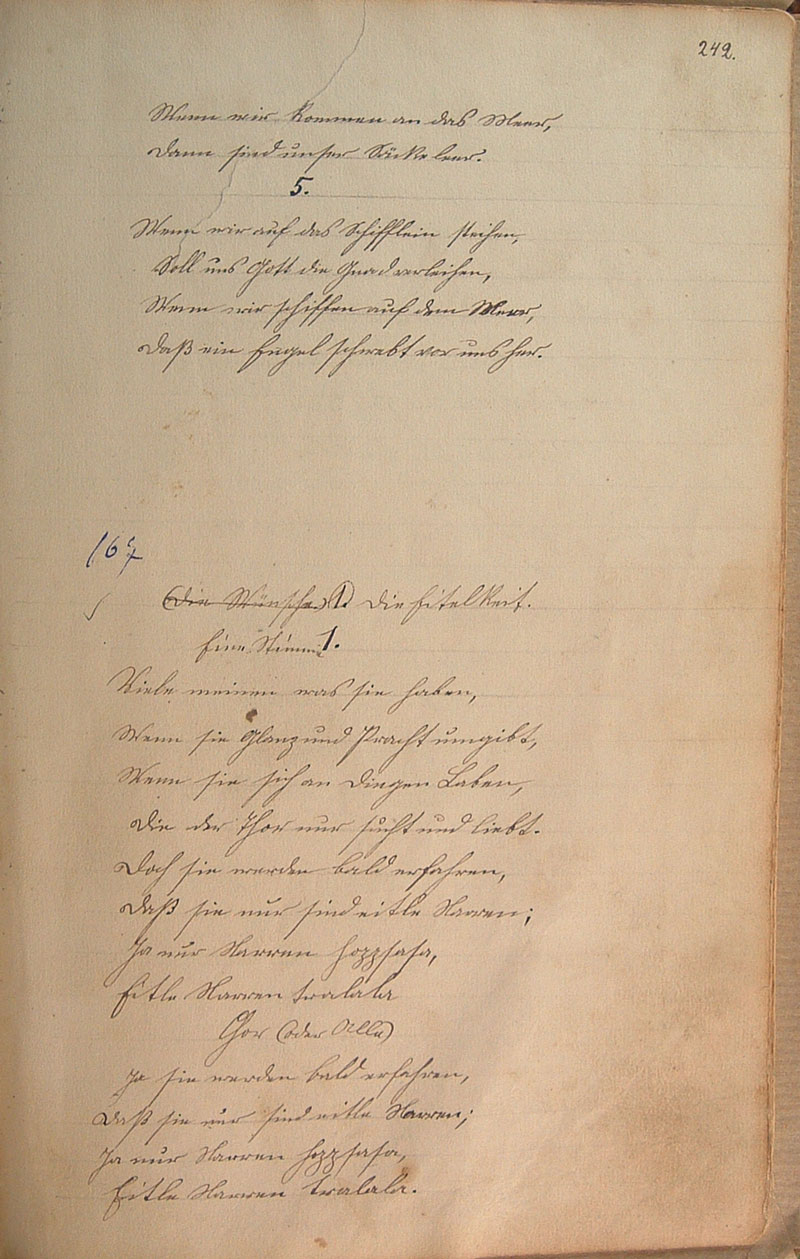 242.
Wenn wir kommen an das Meer,
Dann sind unser Säcke leer.
5.
Wenn wir auf das Schifflein steihen,
Soll uns Gott die Gnad verleihen,
Wenn wir schiffen auf dem Meer,
Daß ein Engel schwebt vor uns her.
167
(Die Wünsche.) 1) Die Eitelkeit.
Eine Stimme 1.
Viele meinen was sie haben,
Wenn sie Glanz und Pracht umgibt,
Wenn sie sich an Dingen Laben,
Die der Thor nur sucht und liebt.
Doch sie werden bald erfahren,
Daß sie nur sind eitle Narren;
Ja nur Narren hoppsasa,
Eitle Narren tralala
Chor (oder Alle)
Ja sie werden bald erfahren,
Daß sie nur sind eitle Narren;
Ja nur Narren hoppsasa,
Eitle Narren tralala.